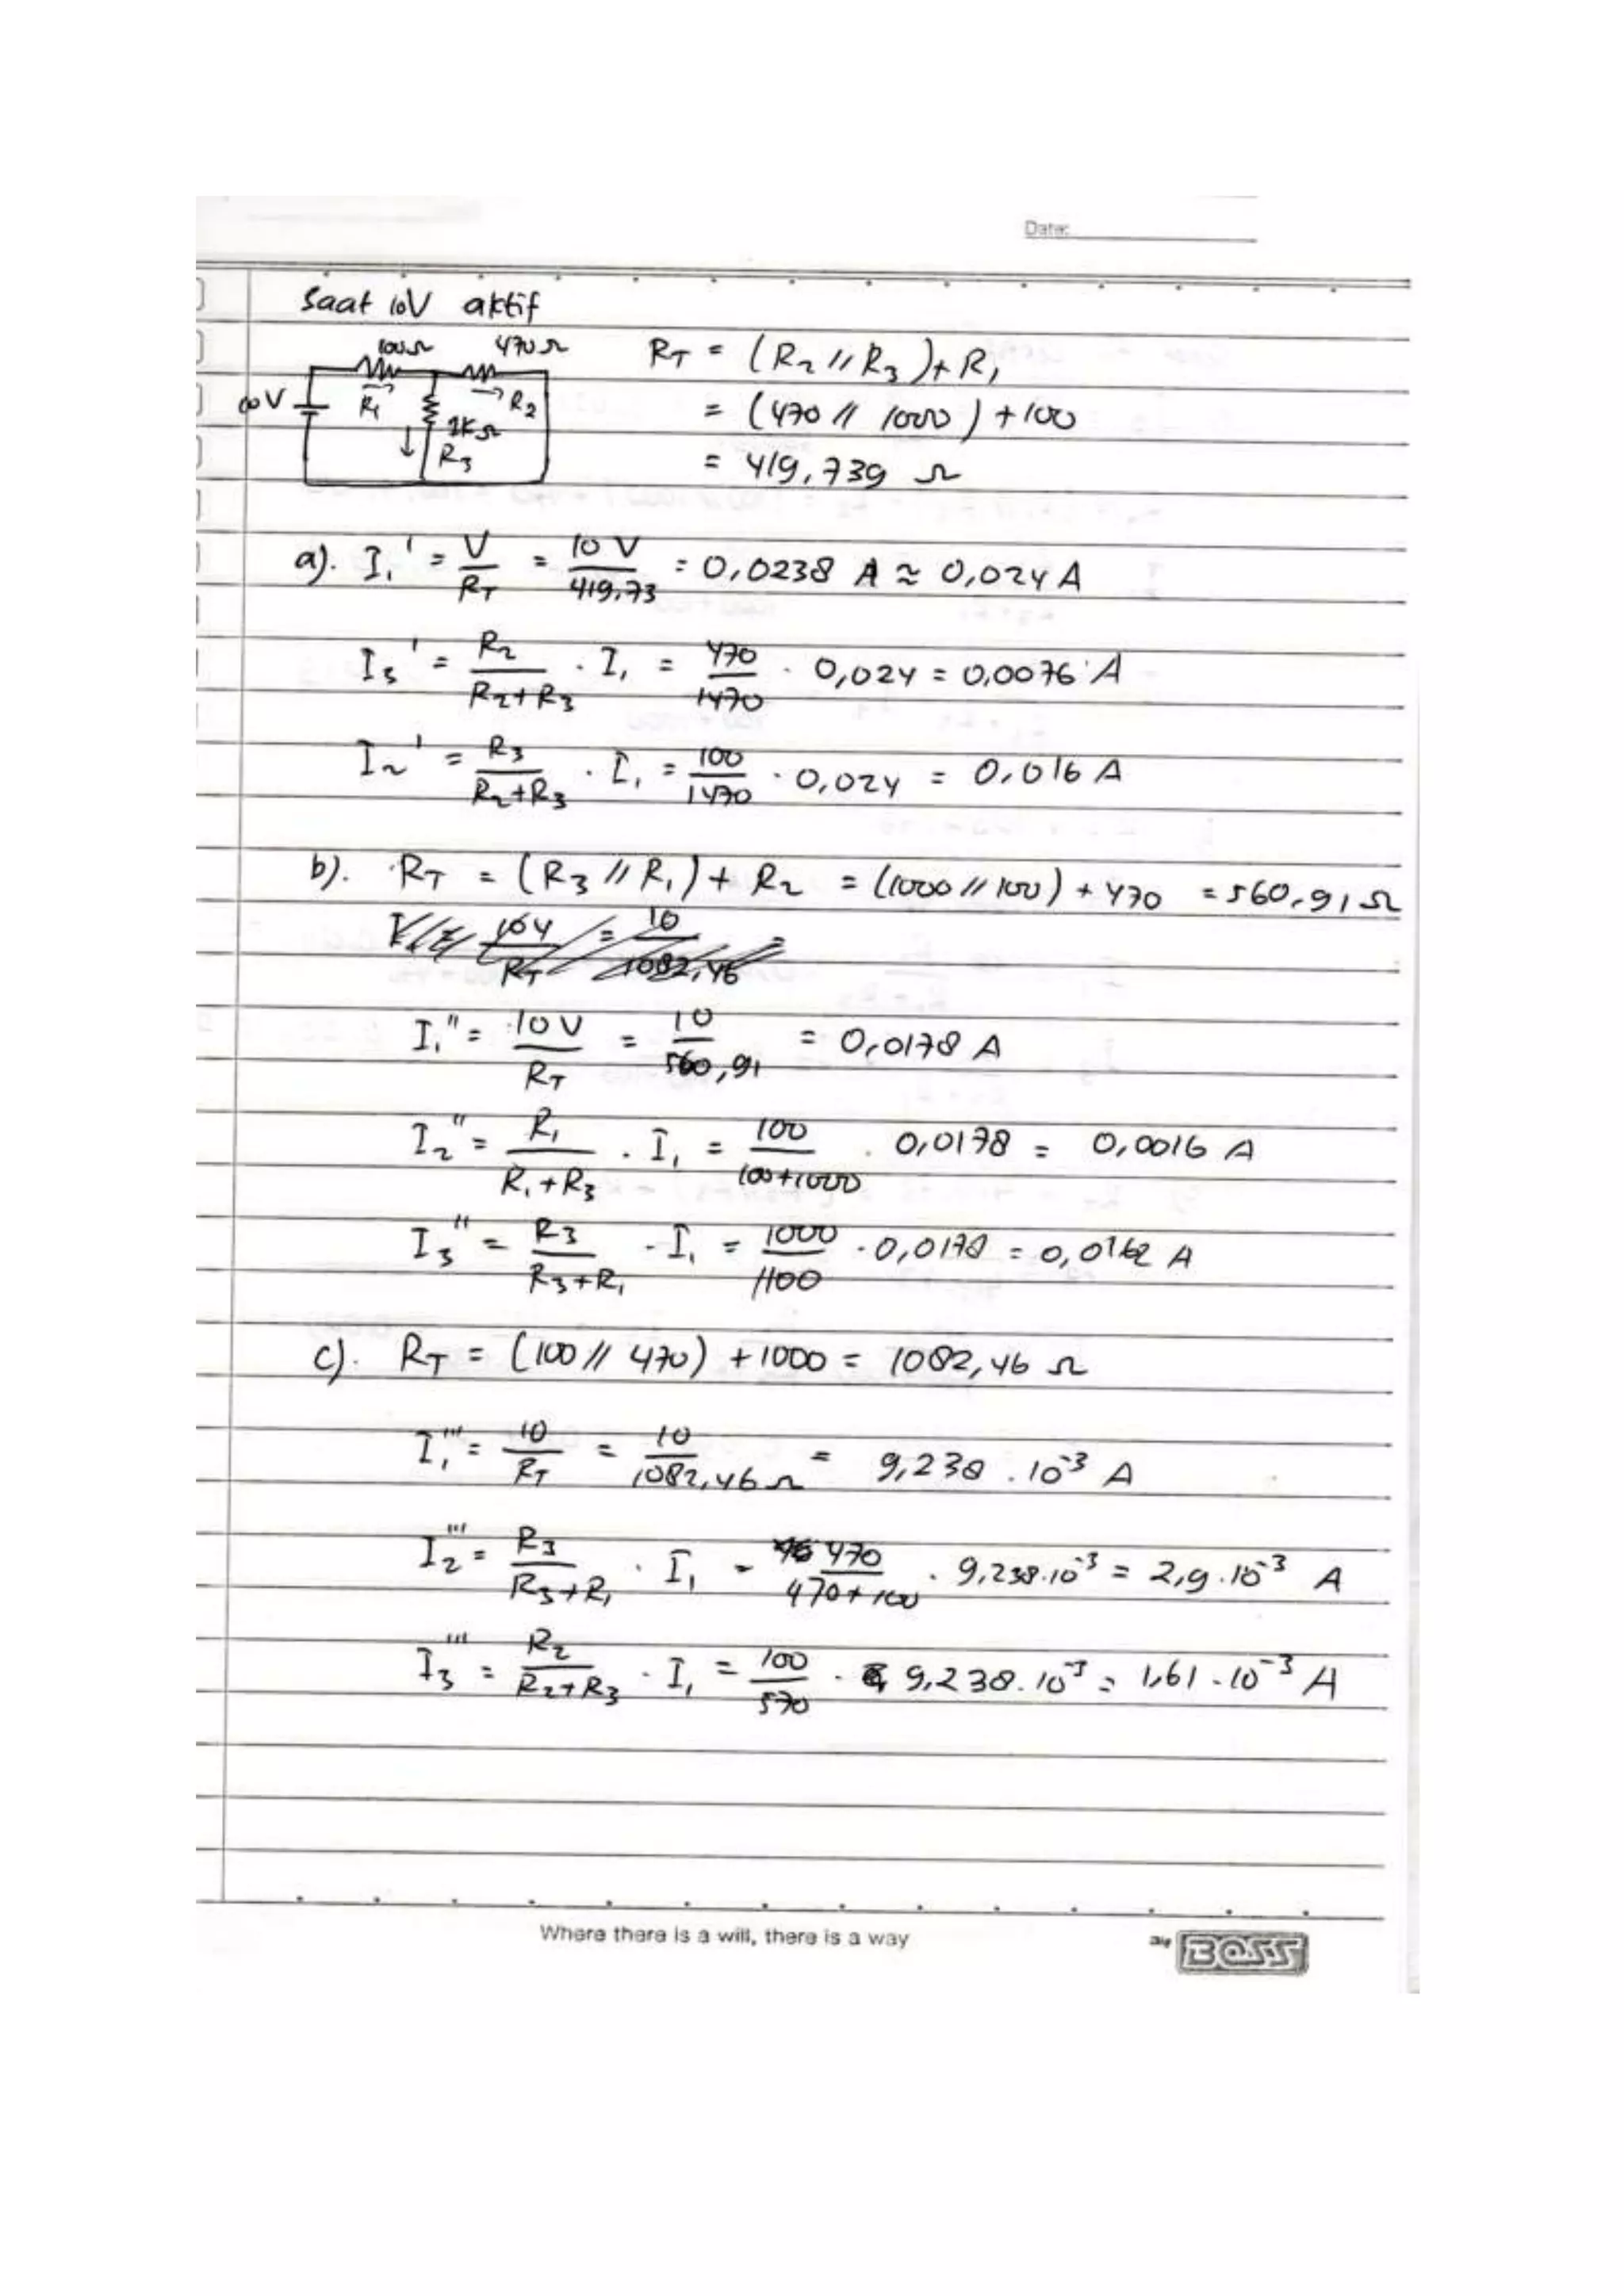 Date:
Saat 10V aktif
100Ω 470Ω
10V R1 R2
1KΩ
R3
RT = (R2 // R3) + R1
= (470 // 1000) + 100
= 419,739 Ω
a). I1' = V/RT = 10 V/419,73 = 0,0238 A ≈ 0,024 A
I3' = R2/R2+R3 . I1 = 470/1470 . 0,024 = 0,0076 A
I2' = R3/R2+R3 . I1 = 100/1470 . 0,024 = 0,016 A
b). RT = (R3 // R1) + R2 = (1000 // 100) + 470 = 560,91 Ω
RT = 10/1082,46 =
I1" = 10 V/RT = 10/560,91 = 0,0178 A
I2" = R1/R1+R3 . I1 = 100/100+1000 . 0,0178 = 0,0016 A
I3" = R3/R3+R1 . I1 = 1000/1100 . 0,0178 = 0,0162 A
c). RT = (100 // 470) + 1000 = 1082,46 Ω
I1"' = 10/RT = 10/1082,46 Ω = 9,238 . 10⁻³ A
I2"' = R3/R3+R1 . I1 = 470/470+100 . 9,238.10⁻³ = 2,9.10⁻³ A
I3"' = R2/R2+R3 . I1 = 100/570 . 9,238.10⁻³ = 1,61.10⁻³ A
Where there is a will, there is a way
BOSS